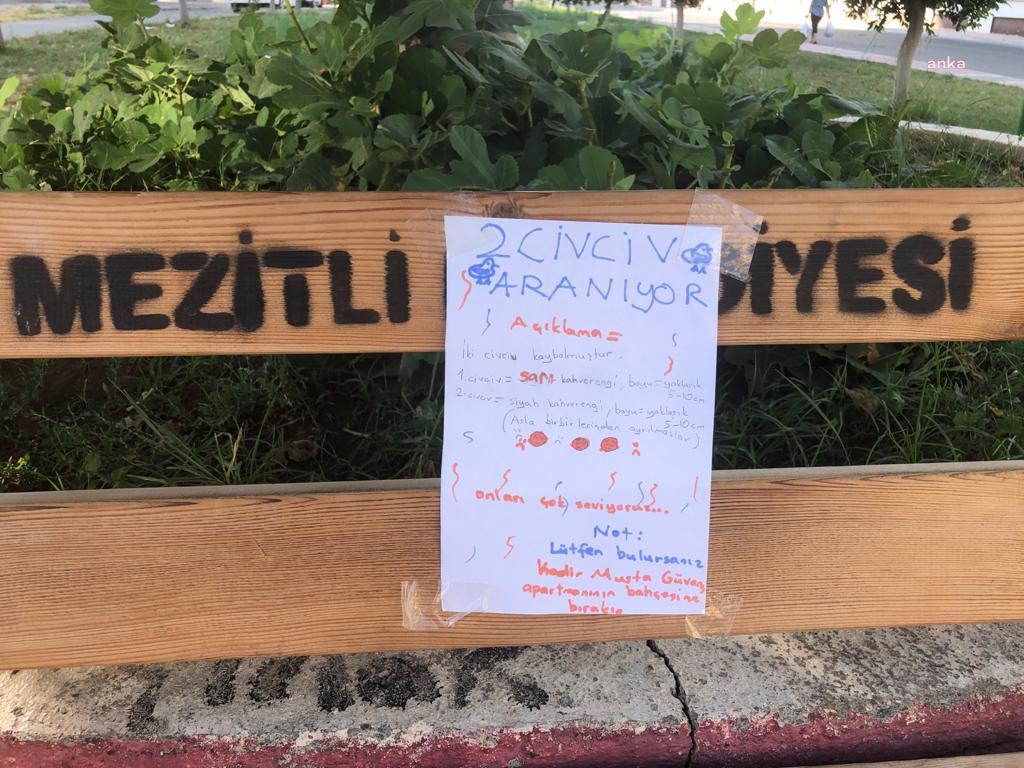 anka
MEZİTLİ İYESİ
2 CİVCİV
ARANIYOR
Açıklama=
İki civciv kaybolmuştur.
1.civciv= sarı kahverengi, boyu=yaklaşık
5-10cm
2.civciv= siyah kahverengi, boyu=yaklaşık
5-10cm
(Asla birbirlerinden ayrılmazlar)
onları çok seviyoruz...
Not:
Lütfen bulursanız
Kadir Musta Güvenç
apartmanının bahçesine
bırakın